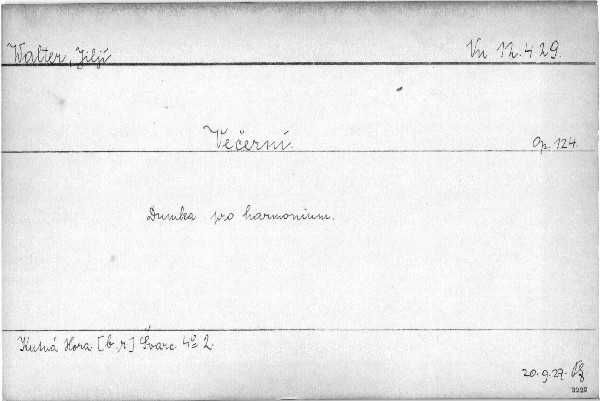 Walter, Jiljí Vn 12.429.
Večerní. Op. 124.
Dumka pro harmonium.
Kutná Hora [b.r.] Švarc 4º 2.
20.9.27.
2228